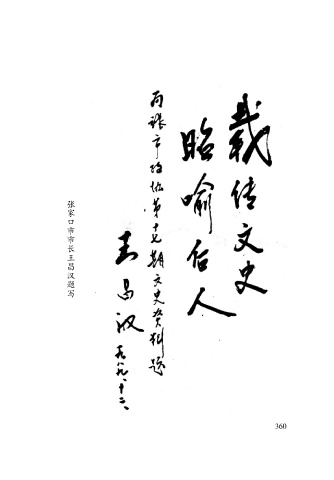 载传文史
昭喻后人
为张市政协第十七期文史资料题
王昌汉
一九八九、十二、
张家口市市长王昌汉题写
360